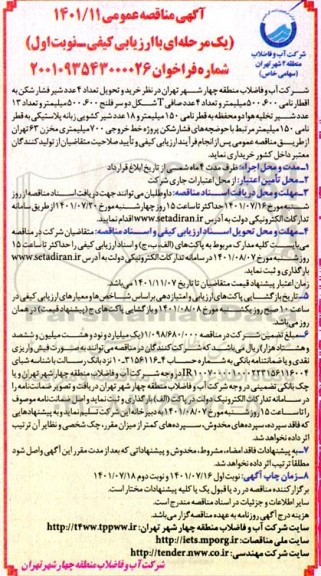 آگهی مناقصه عمومی ۱۴۰۱/۱۱
(یک مرحله‌ای با ارزیابی کیفی-نوبت اول)
شماره فراخوان ۲۰۰۱۰۹۳۵۴۳۰۰۰۰۲۶
شرکت آب و فاضلاب
منطقه ۴ شهر تهران
(سهامی خاص)
شرکت آب و فاضلاب منطقه چهار شهر تهران در نظر دارد خرید و تحویل تعداد ۴ عدد شیر فشارشکن به
اقطار نامی ۵۰۰،۶۰۰ میلیمتر و تعداد ۴ عدد صافی T شکل دو سر فلنج ۵۰۰،۶۰۰ میلیمتر و تعداد ۱۳
عدد شیر تخلیه هوا دو محفظه به قطر نامی ۱۵۰ میلیمتر و ۱۸ عدد شیر کشویی زبانه پلاستیکی به قطر
نامی ۱۵۰ میلیمتر مرتبط با حوضچه‌های فشارشکن پروژه خط خروجی ۷۰۰ میلیمتری مخزن ۶۳ تهران
از طریق مناقصه عمومی پس از انجام فرآیند ارزیابی کیفی و تأیید صلاحیت متقاضیان از تولیدکنندگان
معتبر داخل کشور خریداری نماید.
۱-مدت و محل اجرا: ظرف مدت ۴ ماه شمسی از تاریخ ابلاغ قرارداد
۲-محل تأمین اعتبار: از محل اعتبارات جاری شرکت
۳-مهلت و محل دریافت اسناد مناقصه: داوطلبان می‌توانند جهت دریافت اسناد مناقصه از روز
شنبه مورخ ۱۴۰۱/۰۷/۱۶ حداکثر تا ساعت ۱۵ روز چهارشنبه مورخ ۱۴۰۱/۰۷/۲۰ از طریق سامانه
تدارکات الکترونیکی دولت به آدرس www.setadiran.ir اقدام نمایند.
۴-مهلت و محل تحویل اسناد ارزیابی کیفی و اسناد مناقصه: متقاضیان شرکت در مناقصه
می‌بایست کلیه مدارک مربوط به پاکت‌های (الف، ب، ج) و اسناد ارزیابی کیفی را حداکثر تا ساعت ۱۵
روز شنبه مورخ ۱۴۰۱/۰۸/۰۷ در سامانه تدارکات الکترونیکی دولت به آدرس www.setadiran.ir
بارگذاری و ثبت نماید.
زمان اعتبار پیشنهاد قیمت متقاضیان تا تاریخ ۱۴۰۱/۱۱/۰۷ می‌باشد
۵-تاریخ بازگشایی پاکت‌های ارزیابی و امتیازدهی براساس شاخص‌ها و معیارهای ارزیابی کیفی در
ساعت ۱۰ صبح روز یکشنبه مورخ ۱۴۰۱/۰۸/۰۸ و بازگشایی پاکت‌های ج (پیشنهاد قیمت) در همان
روز می‌باشد.
۶-مبلغ تضمین شرکت در مناقصه ۱/۰۹۸/۶۸۰/۰۰۰ (یک میلیارد و نود و هشت میلیون و ششصد
و هشتاد هزار) ریال می‌باشد که شرکت‌کنندگان در مناقصه می‌توانند به صورت فیش واریزی
نقدی و یا ضمانتنامه بانکی به شماره حساب
در وجه شرکت آب و فاضلاب منطقه چهار شهر تهران و یا
چک بانکی تضمینی در وجه شرکت آب و فاضلاب منطقه چهار شهر تهران دریافت و تصویر ضمانتنامه را
در سامانه تدارکات الکترونیک دولت در پاکت (الف) بارگذاری و ثبت نماید و اصل ضمانتنامه موصوف
را تا ساعت ۱۵ روز شنبه مورخ ۱۴۰۱/۰۸/۰۷ به دبیرخانه این شرکت تسلیم نماید و به پیشنهادهایی
که فاقد سپرده، سپرده‌های مخدوش، سپرده‌های کمتر از میزان مقرر، چک شخصی و نظایر آن ترتیب
اثر داده نخواهد شد.
۷-به پیشنهادات فاقد امضاء، مشروط، مخدوش و پیشنهاداتی که بعد از مدت مقرر این آگهی واصل شود
مطلقاً ترتیب اثر داده نخواهد شد.
۸-زمان چاپ آگهی: نوبت اول ۱۴۰۱/۰۷/۱۶ و نوبت دوم ۱۴۰۱/۰۷/۱۸
برگزارکننده مناقصه در رد یا قبول یک یا کلیه پیشنهادات مختار است.
سایر اطلاعات و جزئیات در اسناد مناقصه مندرج است.
هزینه درج آگهی روزنامه به عهده مناقصه‌گزار می‌باشد.
سایت شرکت آب و فاضلاب منطقه چهار شهر تهران: http://t4ww.tppww.ir
سایت ملی مناقصات: http://iets.mporg.ir
سایت شرکت مهندسی: http://tender.nww.co.ir
شرکت آب و فاضلاب منطقه چهار شهر تهران